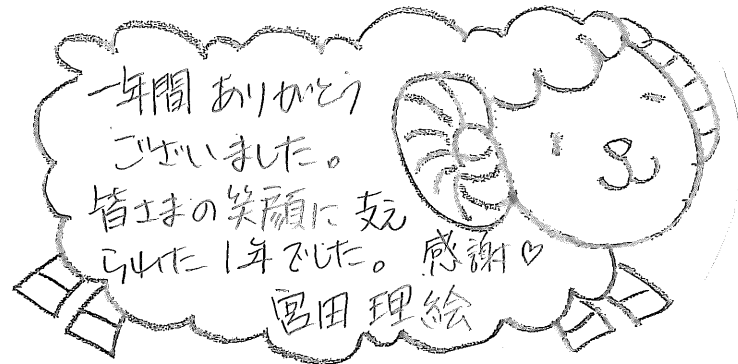 一年間 ありがとう
ございました。
皆さまの笑顔に支え
られた1年でした。感謝♡
宮田 理絵